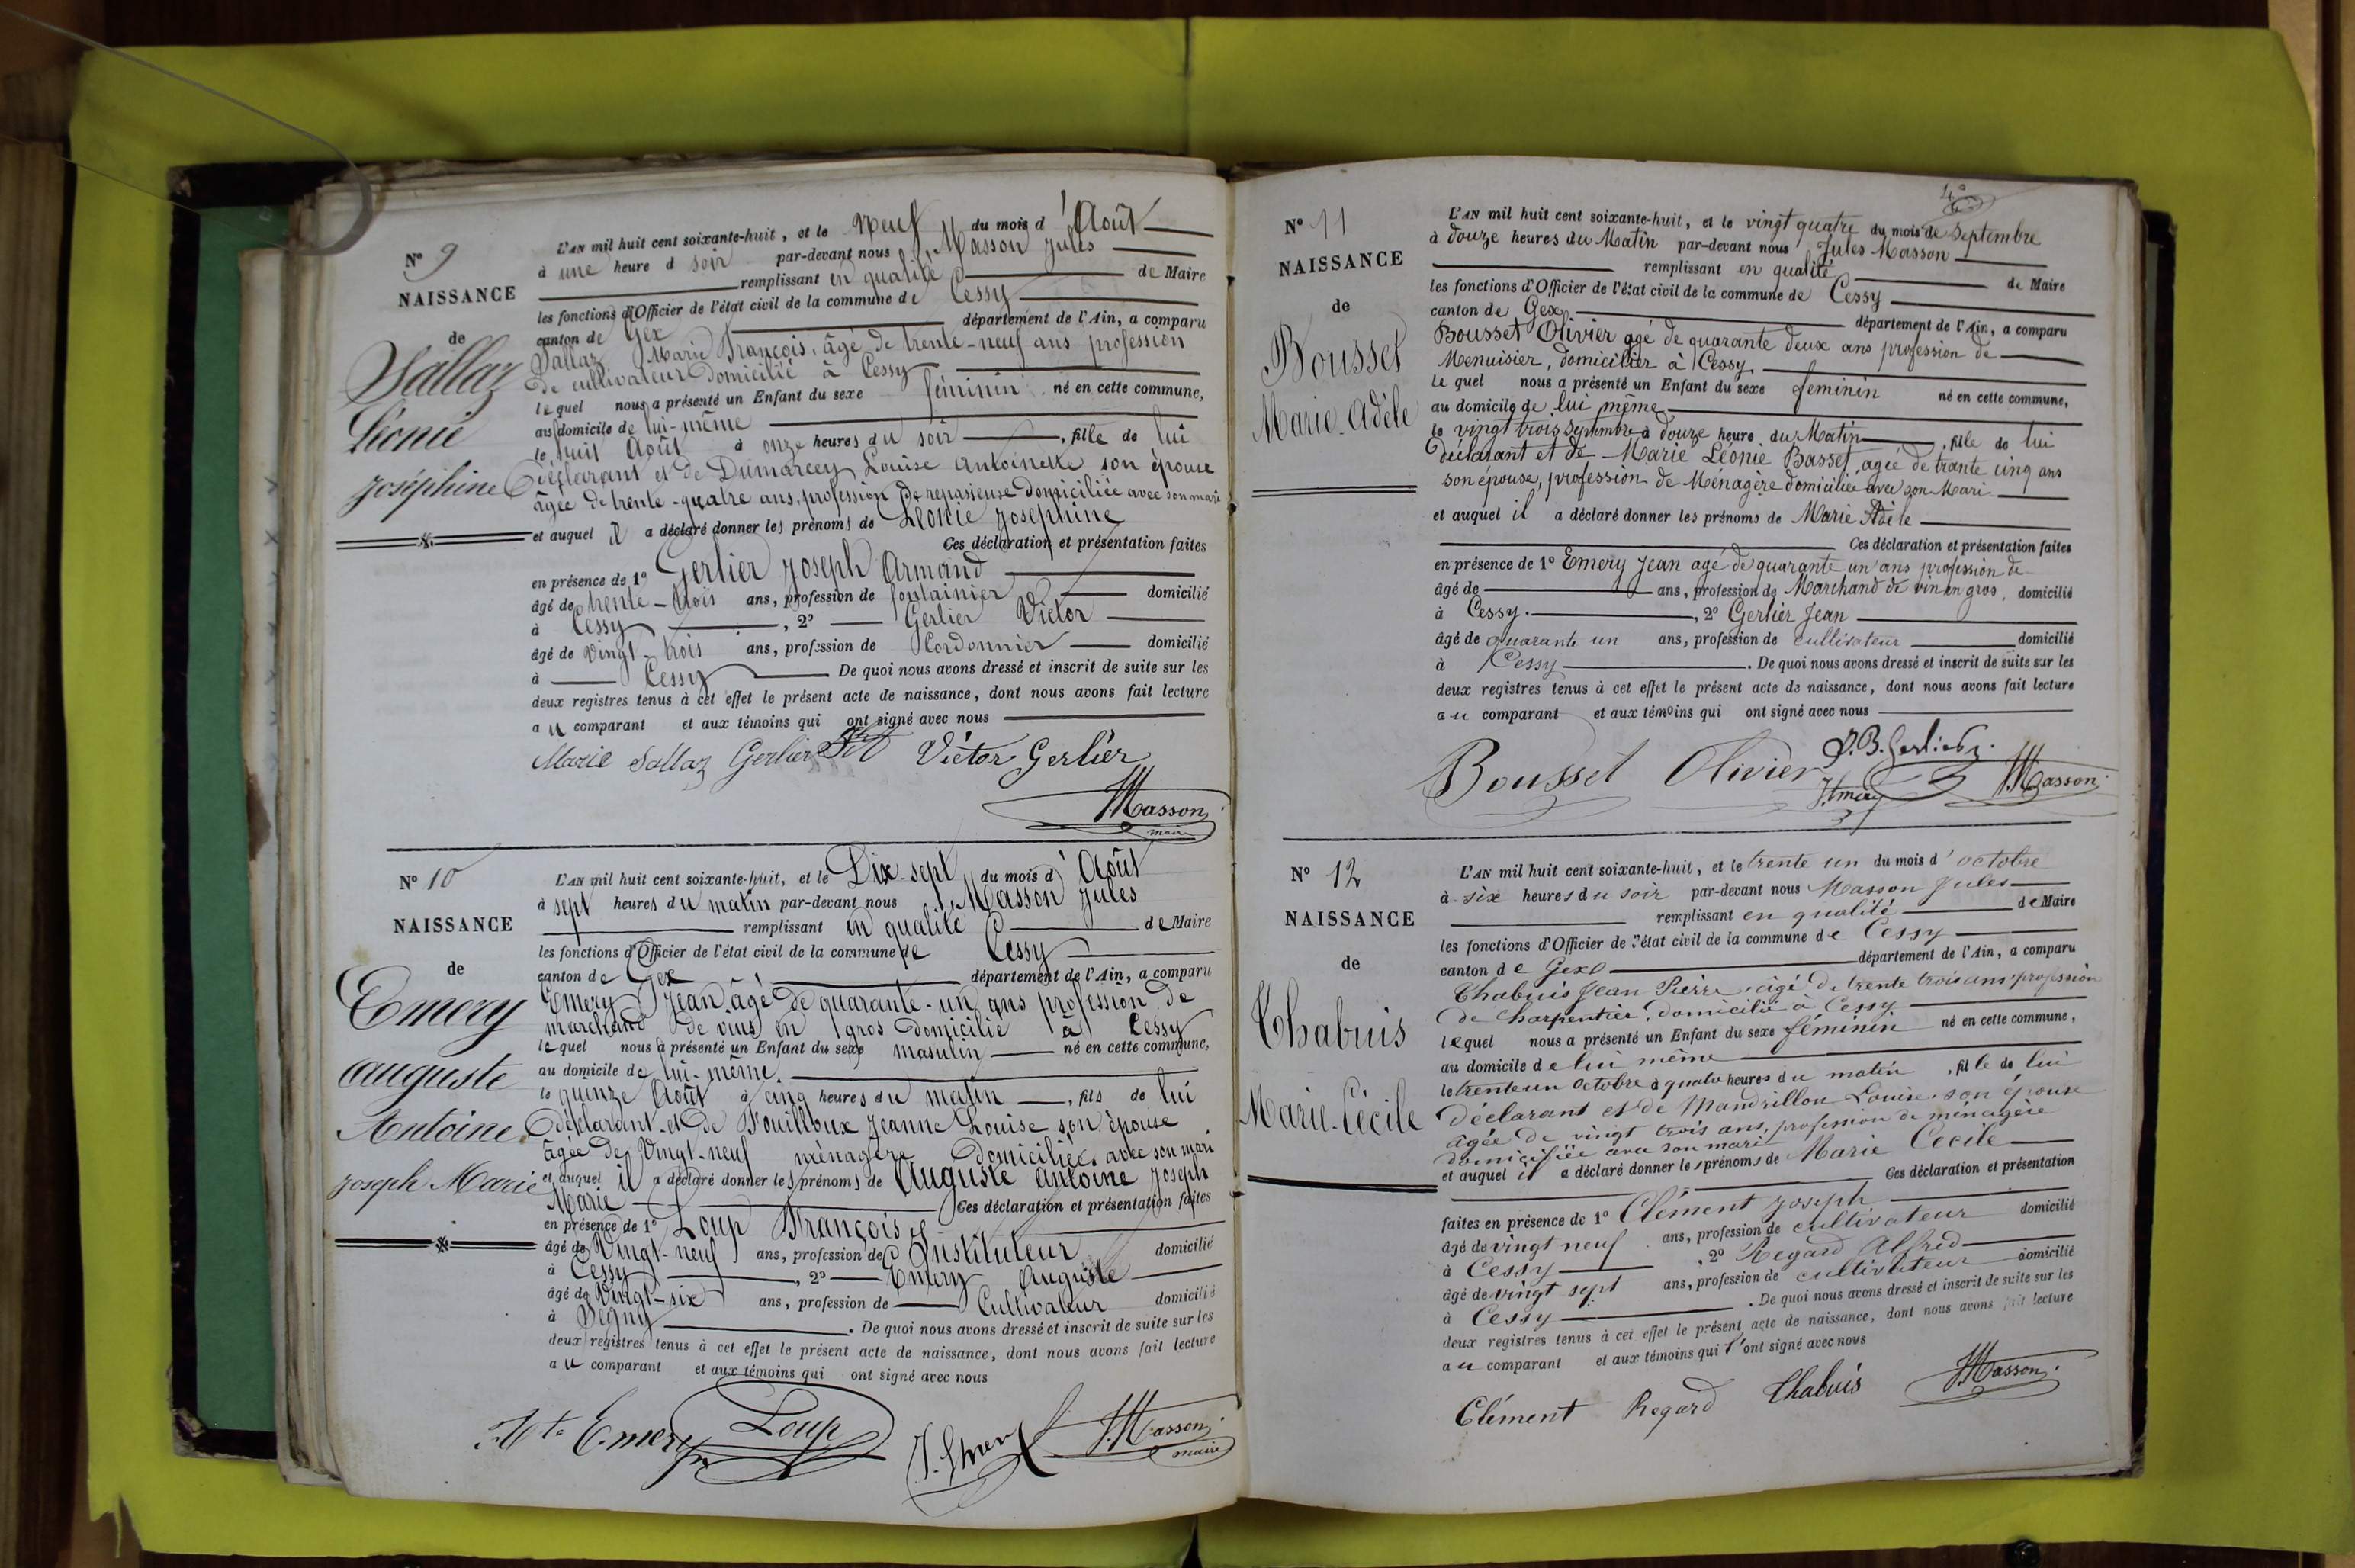 Nº 9
NAISSANCE
de
Sallaz
Léonie
Joséphine
L'AN mil huit cent soixante-huit, et le Neuf du mois d'Août
à une heure d soir par-devant nous Masson Jules
remplissant en qualité de Maire
les fonctions d'Officier de l'état civil de la commune de Cessy
canton de Gex département de l'Ain, a comparu
Sallaz Marie François, âgé de trente-neuf ans profession
de cultivateur domicilié à Cessy
lequel nous a présenté un Enfant du sexe féminin né en cette commune,
au domicile de lui-même
le huit Août à onze heures du soir, fille de lui
déclarant et de Dumarcey Louise Antoinette son épouse
âgée de trente-quatre ans, profession de repasseuse domiciliée avec son mari
et auquel il a déclaré donner les prénoms de Léonie Joséphine
Ces déclaration et présentation faites
en présence de 1º Gerlier Joseph Armand
âgé de trente-trois ans, profession de fontainier domicilié
à Cessy, 2º Gerlier Victor
âgé de vingt-trois ans, profession de Cordonnier domicilié
à Cessy De quoi nous avons dressé et inscrit de suite sur les
deux registres tenus à cet effet le présent acte de naissance, dont nous avons fait lecture
au comparant et aux témoins qui ont signé avec nous
Marie Sallaz Gerlier Victor Gerlier
JMasson
maire
Nº 10
NAISSANCE
de
Emery
Auguste
Antoine
Joseph Marie
L'AN mil huit cent soixante-huit, et le Dix-sept du mois d'Août
à sept heures du matin par-devant nous Masson Jules
remplissant en qualité de Maire
les fonctions d'Officier de l'état civil de la commune de Cessy
canton de Gex département de l'Ain, a comparu
Emery Jean âgé de quarante-un ans profession de
marchand de vins en gros domicilié à Cessy
lequel nous a présenté un Enfant du sexe masulin né en cette commune,
au domicile de lui-même
le quinze Août à cinq heures du matin, fils de lui
déclarant et de Fouilloux Jeanne Louise son épouse
âgée de Vingt-neuf ménagère domiciliée avec son mari
et auquel il a déclaré donner les prénoms de Auguste Antoine Joseph
Marie Ces déclaration et présentation faites
en présence de 1º Loup François
âgé de Vingt-neuf ans, profession de Instituteur domicilié
à Cessy, 2º Emery Auguste
âgé de Vingt-six ans, profession de Cultivateur domicilié
à Ségny. De quoi nous avons dressé et inscrit de suite sur les
deux registres tenus à cet effet le présent acte de naissance, dont nous avons fait lecture
au comparant et aux témoins qui ont signé avec nous
Emery Loup J. Emery JMasson
maire
Nº 11
NAISSANCE
de
Bousset
Marie-Adèle
L'AN mil huit cent soixante-huit, et le vingt quatre du mois de Septembre
à douze heures du Matin par-devant nous Jules Masson
remplissant en qualité de Maire
les fonctions d'Officier de l'état civil de la commune de Cessy
canton de Gex département de l'Ain, a comparu
Bousset Olivier agé de quarante deux ans profession de
Menuisier, domicilier à Cessy
lequel nous a présenté un Enfant du sexe feminin né en cette commune,
au domicile de lui même
le vingt trois Septembre à douze heure du Matin, fille de lui
déclarant et de Marie Léonie Basset, agée de trante cinq ans
son épouse, profession de Menagère domiciliée avec son Mari
et auquel il a déclaré donner les prénoms de Marie Adèle
Ces déclaration et présentation faites
en présence de 1º Emery Jean agé de quarante un ans profession de
âgé de ans, profession de Marchand de vin en gros, domicilié
à Cessy., 2º Gerlier Jean
âgé de quarante un ans, profession de cultivateur domicilié
à Cessy. De quoi nous avons dressé et inscrit de suite sur les
deux registres tenus à cet effet le présent acte de naissance, dont nous avons fait lecture
au comparant et aux témoins qui ont signé avec nous
Bousset Olivier J. Emery JMasson
Nº 12
NAISSANCE
de
Chabuis
Marie-Cécile
L'AN mil huit cent soixante-huit, et le trente un du mois d'octobre
à six heures du soir par-devant nous Masson Jules
remplissant en qualité de Maire
les fonctions d'Officier de l'état civil de la commune de Cessy
canton de Gex département de l'Ain, a comparu
Chabuis Jean Pierre, âgé de trente trois ans profession
de charpentier, domicilié à Cessy
lequel nous a présenté un Enfant du sexe féminin né en cette commune,
au domicile de lui même
le trente un Octobre à quatre heures du matin, fille de lui
déclarant et de Mandrillon Louise, son épouse
âgée de vingt trois ans, profession de ménagère
domiciliée avec son mari
et auquel il a déclaré donner les prénoms de Marie Cécile
Ces déclaration et présentation
faites en présence de 1º Clément Joseph
âgé de vingt neuf ans, profession de cultivateur domicilié
à Cessy, 2º Regard Alfred
âgé de vingt sept ans, profession de cultivateur domicilié
à Cessy. De quoi nous avons dressé et inscrit de suite sur les
deux registres tenus à cet effet le présent acte de naissance, dont nous avons fait lecture
au comparant et aux témoins qui l'ont signé avec nous
Clément Regard Chabuis JMasson